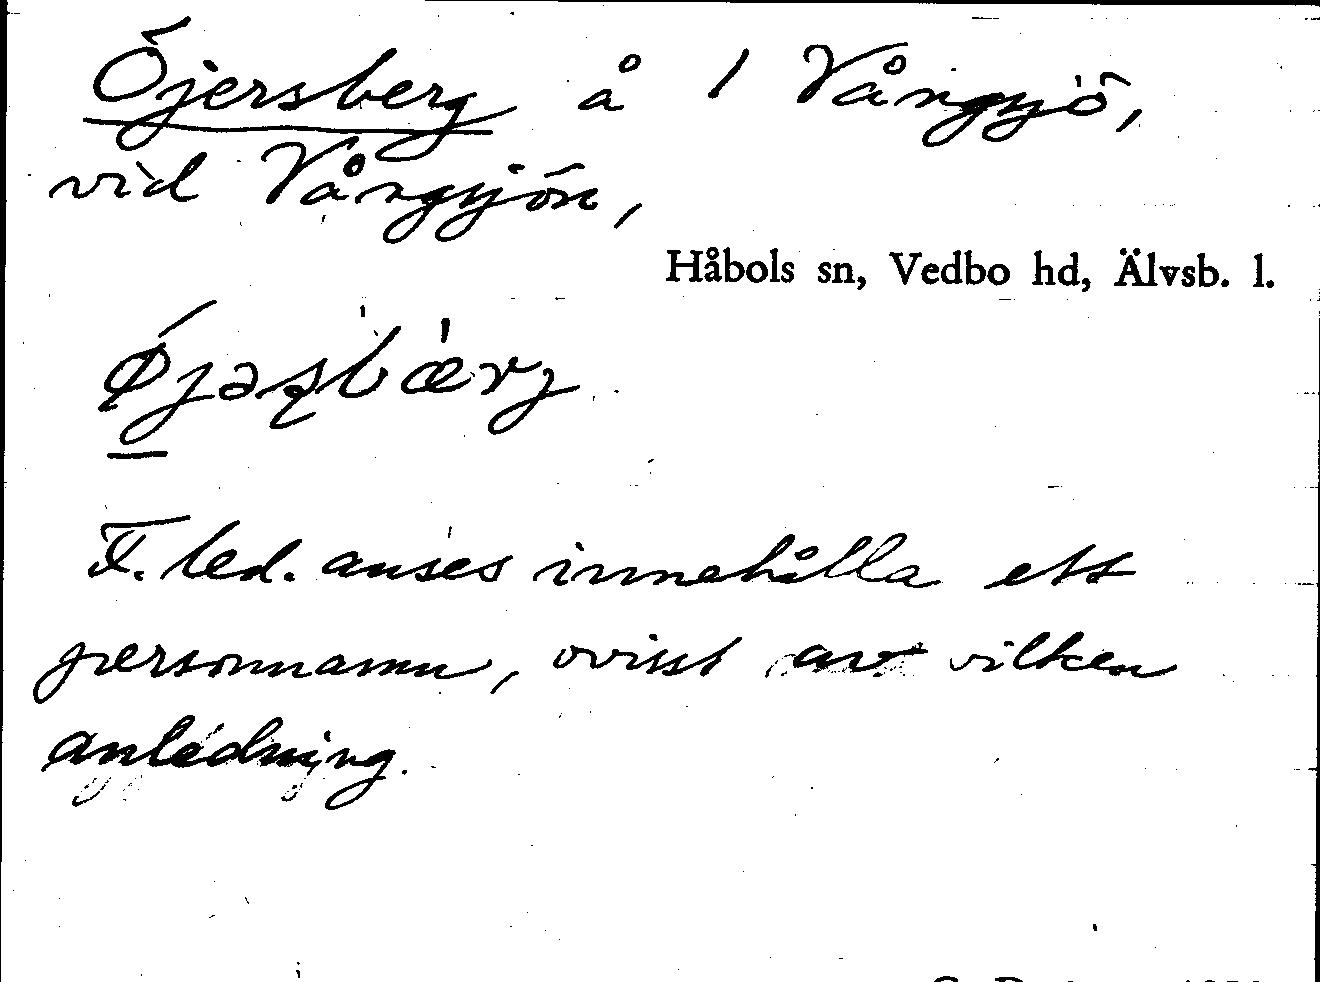 Öjersberg å 1 Vångsjö,
vid Vångsjön,
Håbols sn, Vedbo hd, Älvsb. l.
F. led. anses innehålla ett
personnamn, ovisst av vilken
anledning.